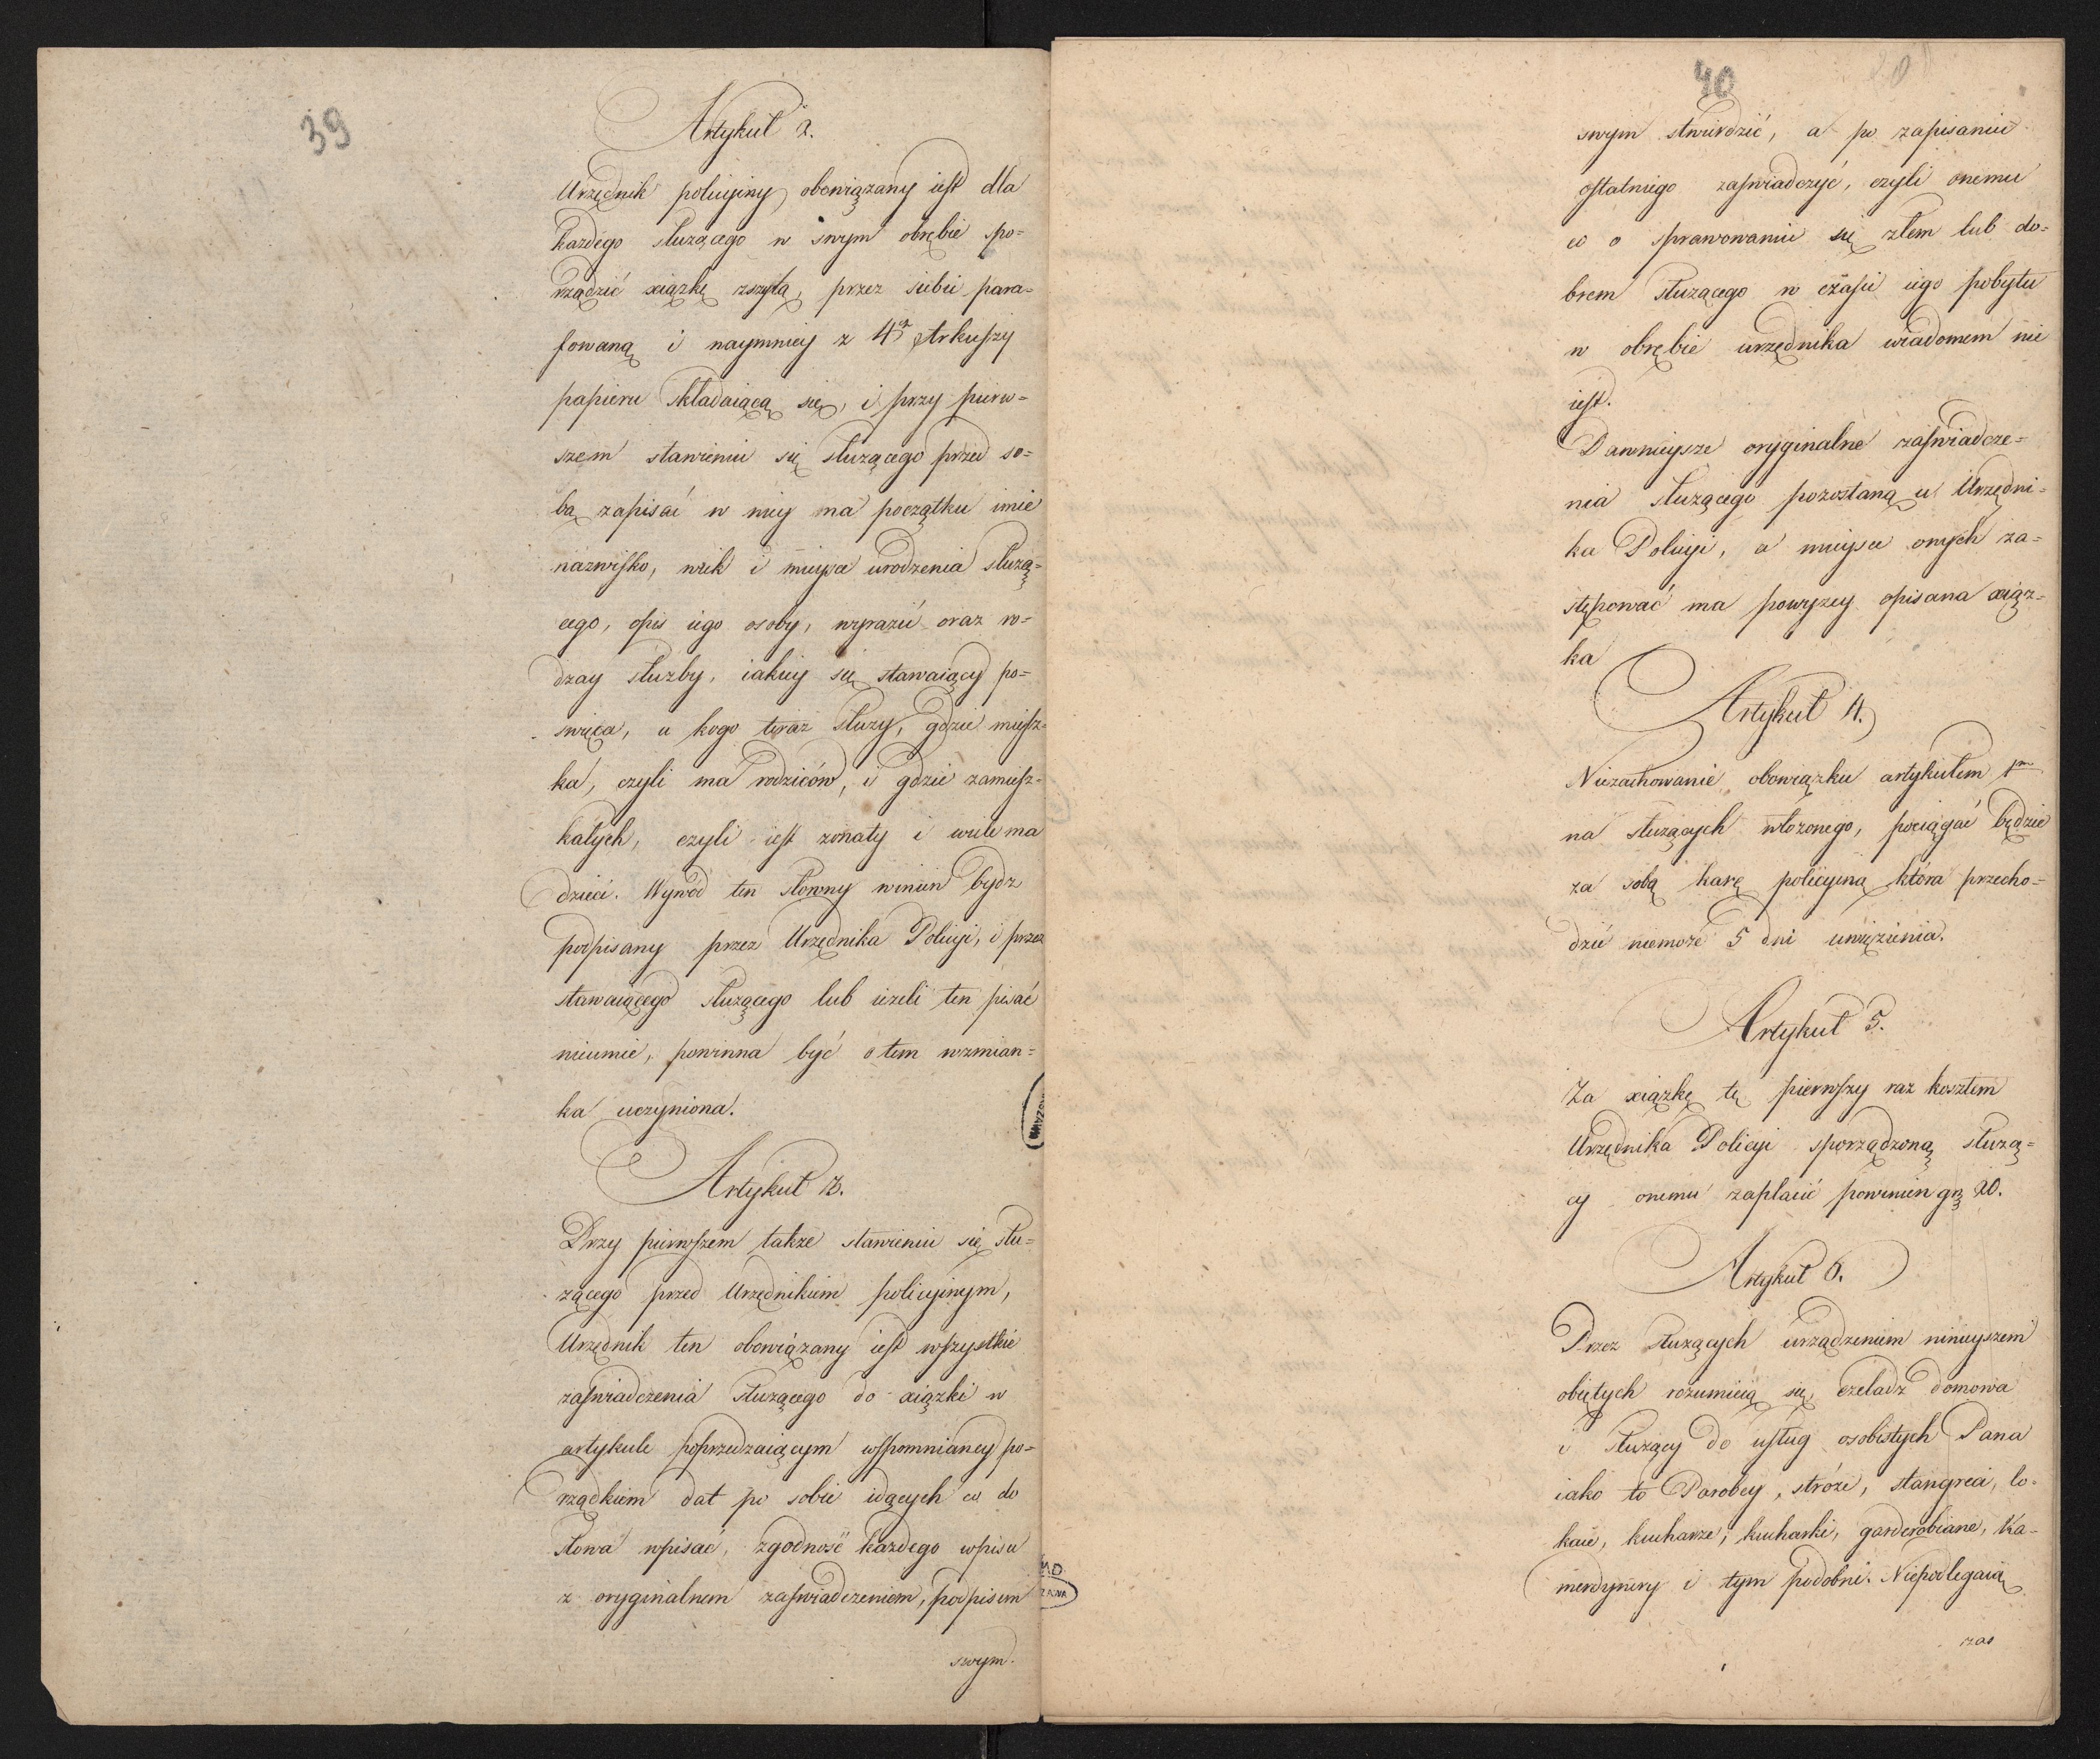 39
Artykuł 2.
Urzędnik policyiny obowiązany iest dla
każdego służącego w swym obrębie spo=
rządzić xiążkę zszytą, przez siebie para=
fowaną i naymniey z 4ch Arkuszy
papieru składaiącą się, i przy pierw=
szem stawieniu się służącego przed so=
bą zapisać w niey na początku imie
nazwisko, wiek i mieysce urodzenia służą=
cego, opis iego osoby, wyrazić oraz ro=
dzay służby, iakiey się stawaiący po=
święca, u kogo teraz służy, gdzie miesz=
ka, czyli ma rodziców, i gdzie zamiesz=
kałych, czyli iest żonaty i wiele ma
dzieci. Wywód ten słowny winien bydź
podpisany przez Urzędnika Policyi, i przez
stawaiącego służącego lub ieżeli ten pisać
nieumie, powinna być o tem wzmian=
ka uczyniona.
Artykuł 3.
Przy pierwszem także stawieniu się słu=
żącego przed Urzędnikiem policyinym,
Urzędnik ten obowiązany iest wszystkie
zaświadczenia służącego do xiążki w
artykule poprzedzaiącym wspomnianey po=
rządkiem dat po sobie idących co do
słowa wpisać, zgodność każdego wpisu
z oryginalnem zaświadczeniem, podpisem
swym.
40
20
swym stwirdzić, a po zapisaniu
ostatniego zaświadczyć, czyli onemu
co o sprawowaniu się złem lub do=
brem służącego w czasie iego pobytu
w obrębie urzędnika wiadomem nie
iest.
Dawnieysze oryginalne zaświadcze=
nia służącego pozostaną u Urzędni=
ka Policyi, a mieysce onych za=
stępować ma powyżey opisana xiąż=
ka
Artykuł 4.
Niezachowanie obowiązku artykułem 1m
na służących włożonego, pociągać będzie
za sobą karę policyiną która przecho=
dzić niemoże 5 dni uwięzienia.
Artykuł 5.
Za xiążkę tę pierwszy raz kosztem
Urzędnika Policyi sporządzoną służą=
cy onemu zapłacić powinien gr. 20.
Artykuł 6.
Przez służących urządzeniem ninieyszem
obiętych rozumieią się, czeladź domowa
i służący do usług osobistych Pana
iako to Parobcy, stróże, stangreci, lo=
kaie, kucharze, kucharki, garderobiane, Ka=
merdynery i tym podobni. Niepodlegaią
zaś